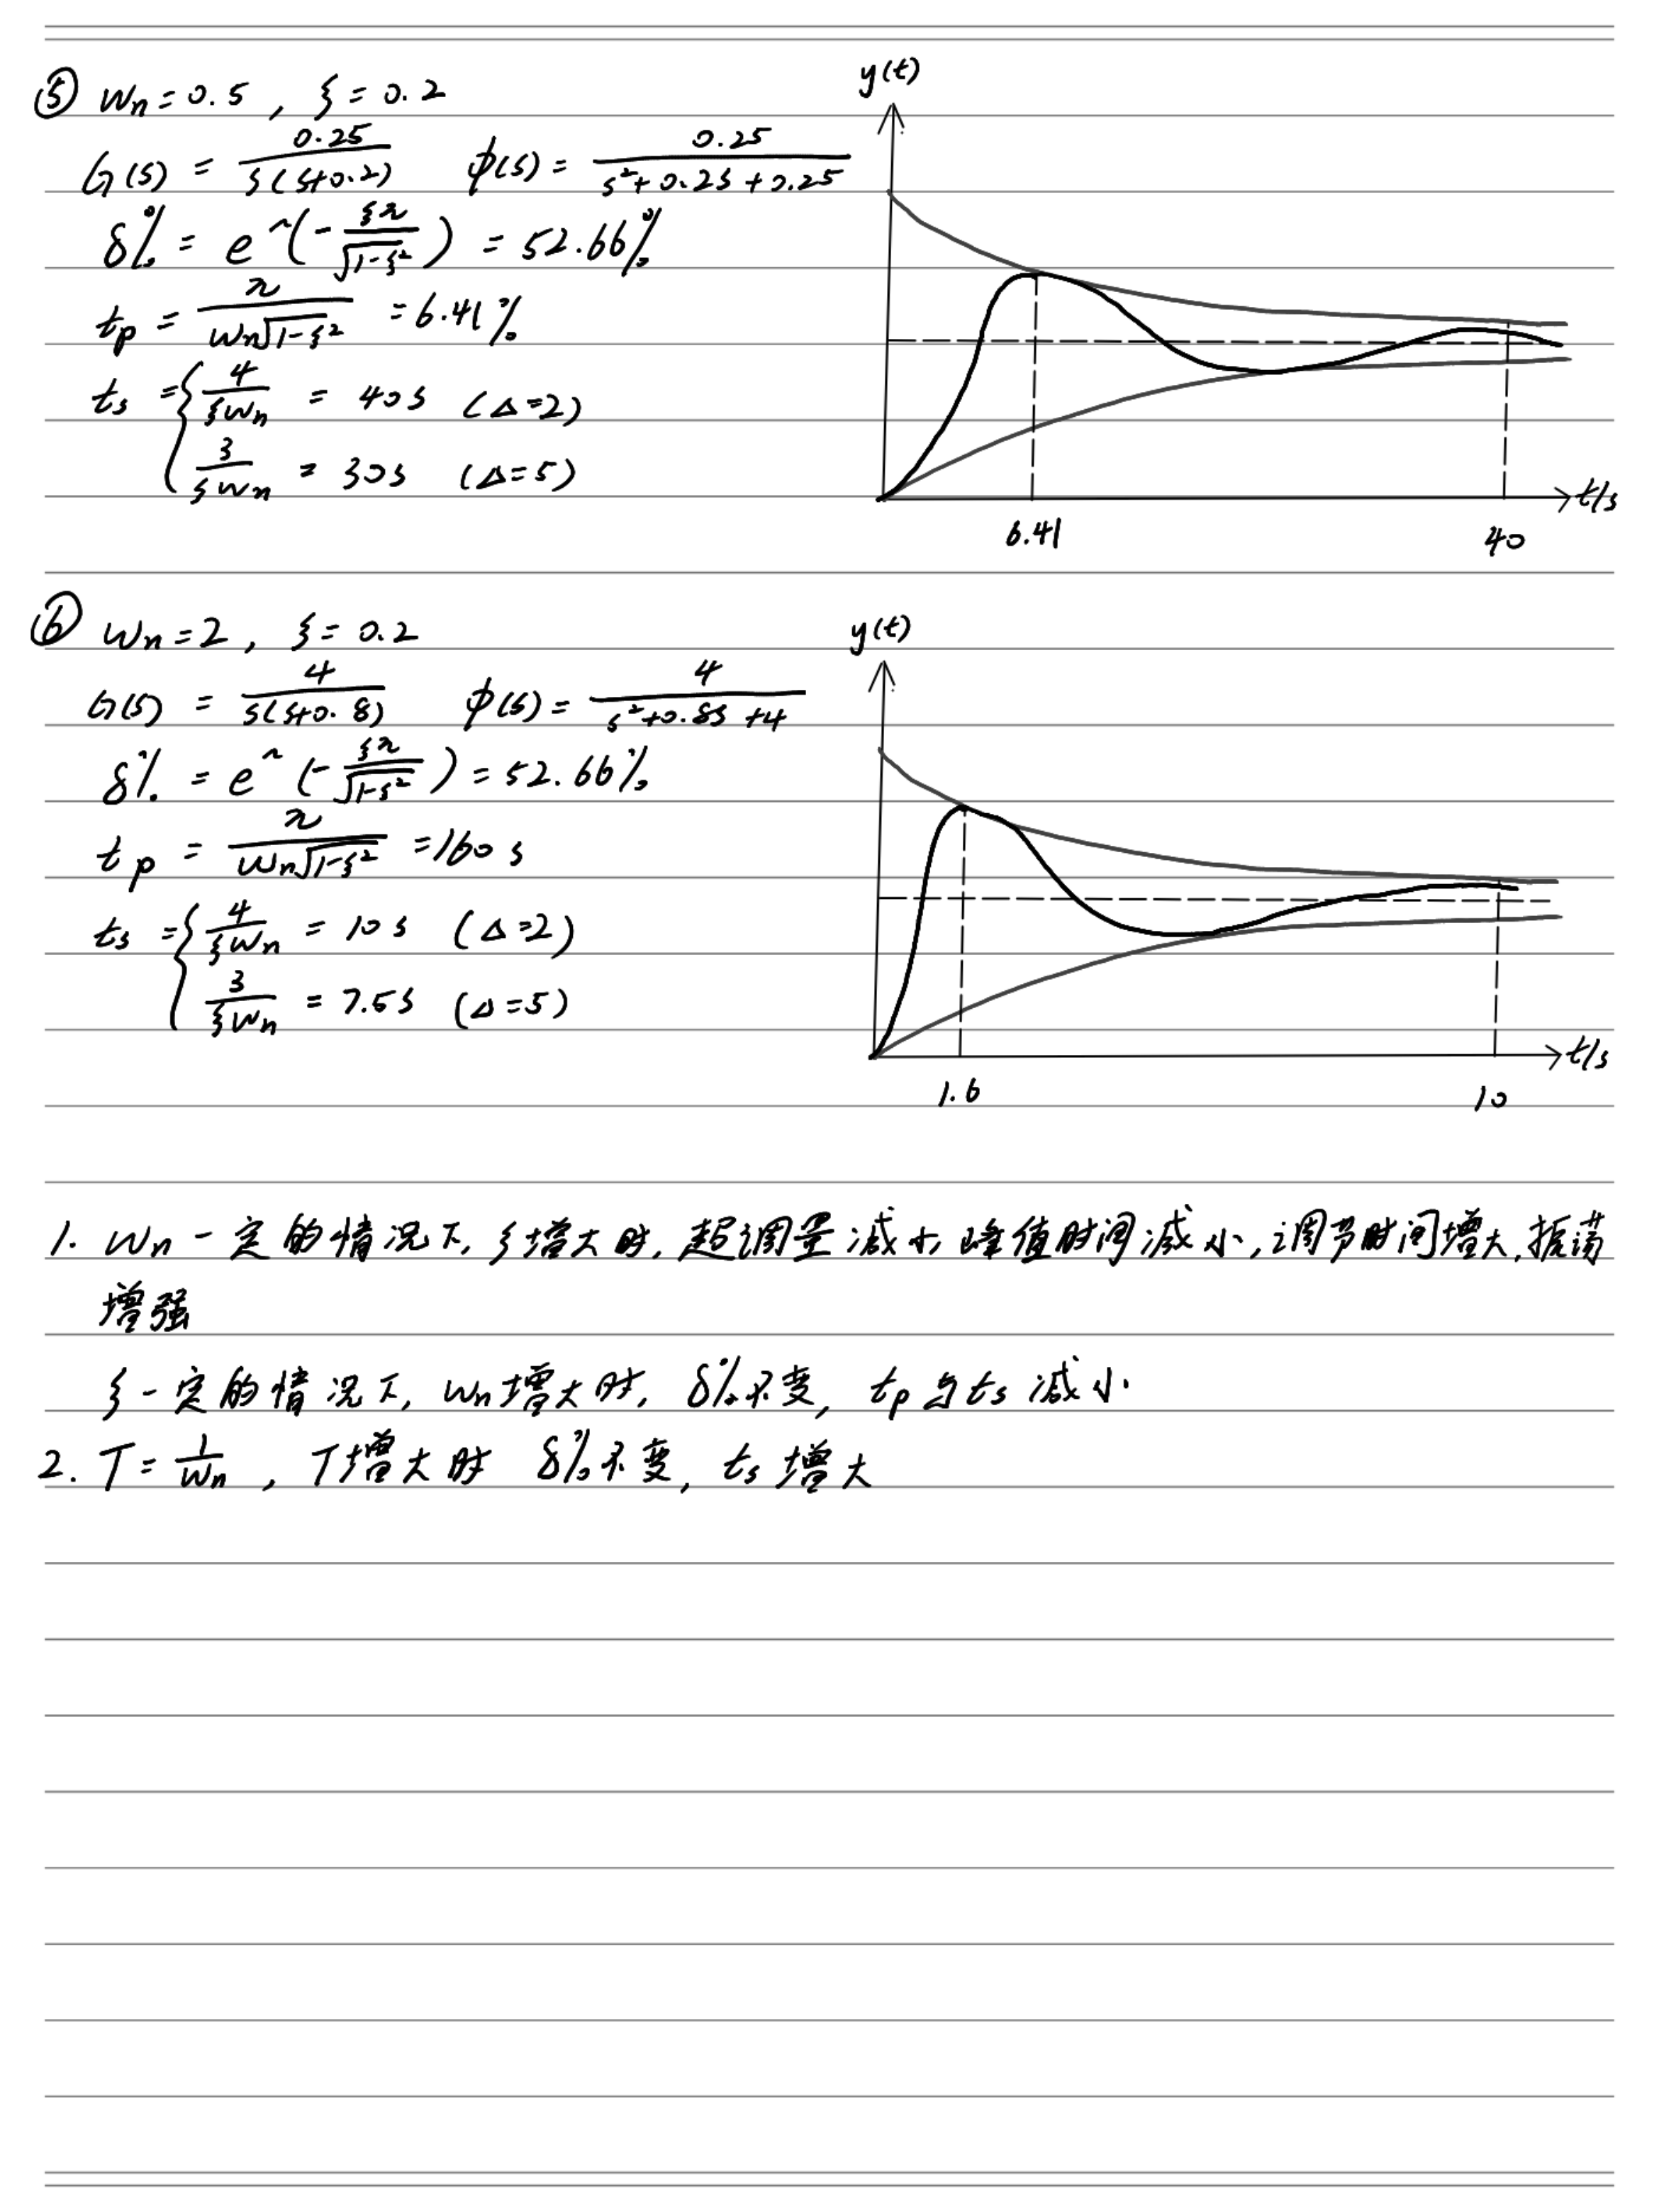 ⑤ Wn=0.5 , ξ=0.2
G(s) = 0.25/(s(s+0.2)) φ(s) = 0.25/(s²+0.2s+0.25)
δ% = e^(-ξπ/√(1-ξ²)) = 52.66%
tp = π/(Wn√(1-ξ²)) = 6.41%
ts = { 4/(ξWn) = 40s (Δ=2)
3/(ξWn) = 30s (Δ=5)
y(t)
t/s
6.41
40
⑥ Wn=2 , ξ=0.2
G(s) = 4/(s(s+0.8)) φ(s) = 4/(s²+0.8s+4)
δ% = e^(-ξπ/√(1-ξ²)) = 52.66%
tp = π/(Wn√(1-ξ²)) = 160 s
ts = { 4/(ξWn) = 10s (Δ=2)
3/(ξWn) = 7.5s (Δ=5)
y(t)
t/s
1.6
10
1. Wn一定的情况下, ξ增大时, 超调量减小, 峰值时间减小, 调节时间增大, 振荡
增强
ξ一定的情况下, Wn增大时, δ%不变, tp与ts减小
2. T=1/Wn , T增大时 δ%不变, ts增大